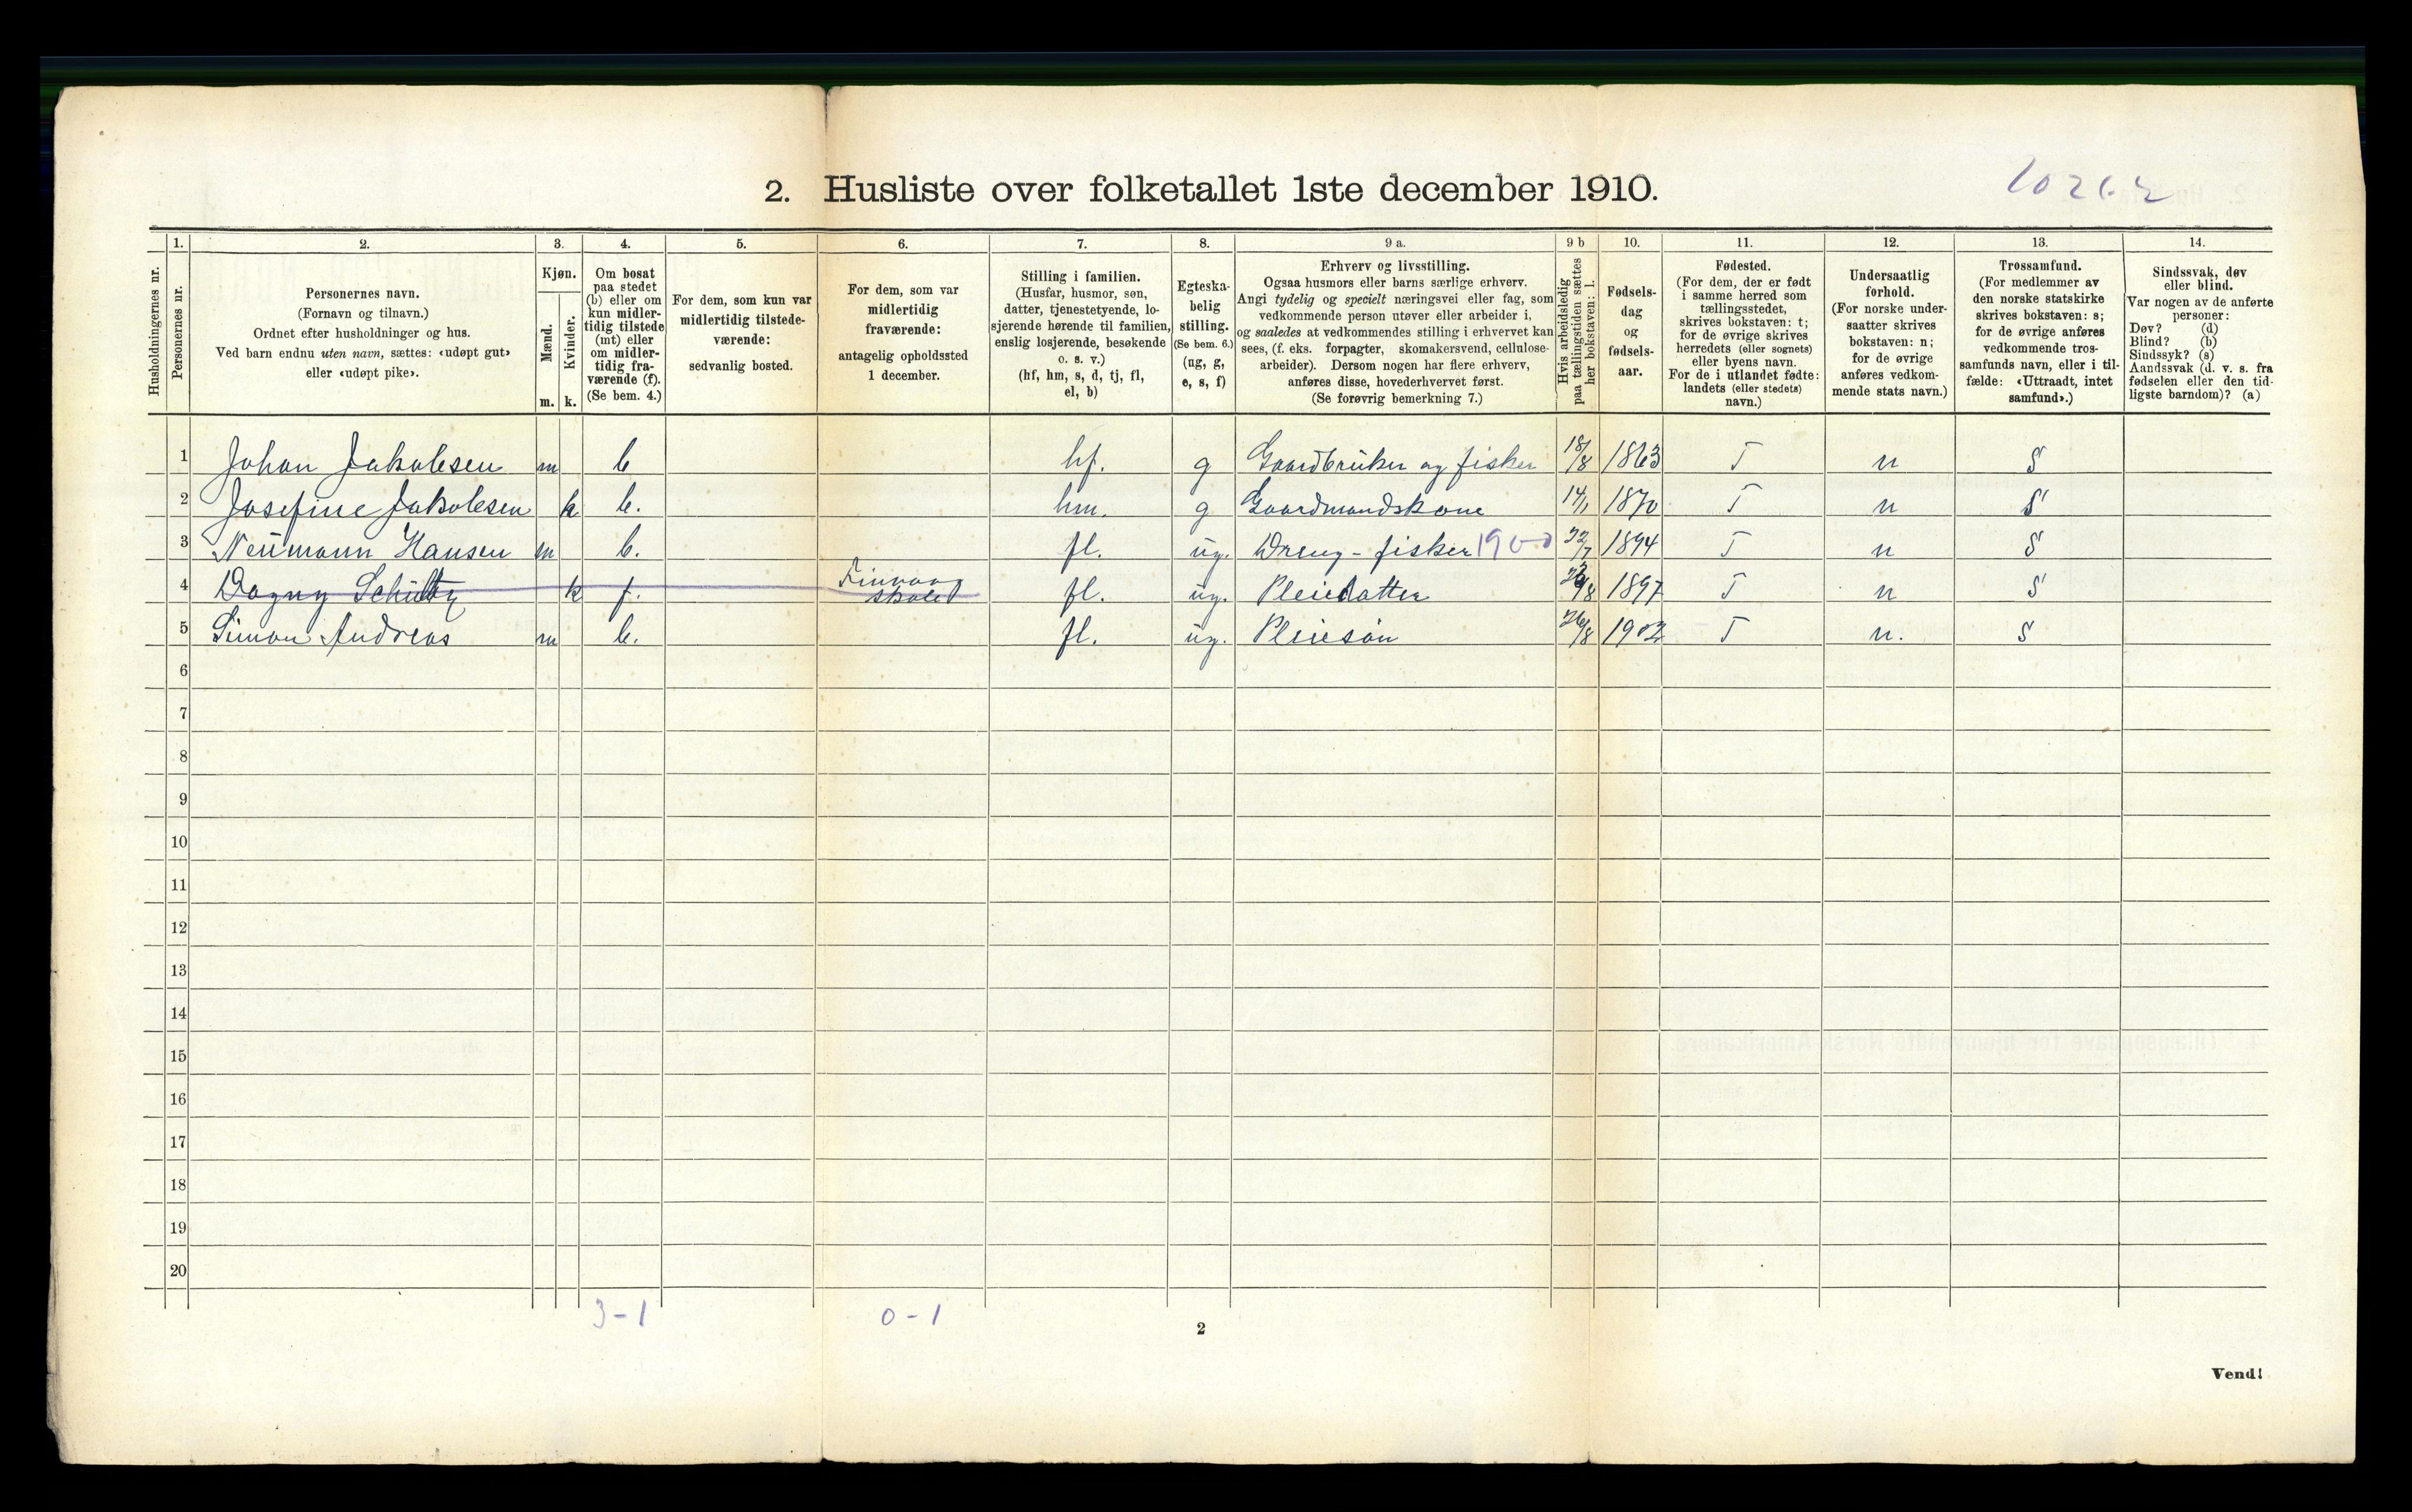 2. Husliste over folketallet 1ste december 1910.
Husholdningernes nr.
1.
Personernes nr.
2.
Personernes navn.
(Fornavn og tilnavn.)
Ordnet efter husholdninger og hus.
Ved barn endnu uten navn, sættes: «udøpt gut»
eller «udøpt pike».
3.
Kjøn.
Mænd.
Kvinder.
m. k.
4.
Om bosat
paa stedet
(b) eller om
kun midler-
tidig tilstede
(mt) eller
om midler-
tidig fra-
værende (f).
(Se bem. 4.)
5.
For dem, som kun var
midlertidig tilstede-
værende:
sedvanlig bosted.
6.
For dem, som var
midlertidig
fraværende:
antagelig opholdssted
1 december.
7.
Stilling i familien.
(Husfar, husmor, søn,
datter, tjenestetyende, lo-
sjerende hørende til familien,
enslig losjerende, besøkende
o. s. v.)
(hf, hm, s, d, tj, fl,
el, b)
8.
Egteska-
belig
stilling.
(Se bem. 6.)
(ug, g,
e, s, f)
9 a.
Erhverv og livsstilling.
Ogsaa husmors eller barns særlige erhverv.
Angi tydelig og specielt næringsvei eller fag, som
vedkommende person utøver eller arbeider i,
og saaledes at vedkommendes stilling i erhvervet kan
sees, (f. eks. forpagter, skomakersvend, cellulose-
arbeider). Dersom nogen har flere erhverv,
anføres disse, hovederhvervet først.
(Se forøvrig bemerkning 7.)
9 b
Hvis arbeidsledig
paa tællingstiden sættes
her bokstaven: l.
10.
Fødsels-
dag
og
fødsels-
aar.
11.
Fødested.
(For dem, der er født
i samme herred som
tællingsstedet,
skrives bokstaven: t;
for de øvrige skrives
herredets (eller sognets)
eller byens navn.
For de i utlandet fødte:
landets (eller stedets)
navn.)
12.
Undersaatlig
forhold.
(For norske under-
saatter skrives
bokstaven: n;
for de øvrige
anføres vedkom-
mende stats navn.)
13.
Trossamfund.
(For medlemmer av
den norske statskirke
skrives bokstaven: s;
for de øvrige anføres
vedkommende tros-
samfunds navn, eller i til-
fælde: «Uttraadt, intet
samfund».)
14.
Sindssvak, døv
eller blind.
Var nogen av de anførte
personer:
Døv? (d)
Blind? (b)
Sindssyk? (s)
Aandssvak (d. v. s. fra
fødselen eller den tid-
ligste barndom)? (a)
1 Johan Jakobsen m b hf. g Gaardbruker og fisker 18/8 1863 T n S
2 Josefine Jakobsen k b. hm. g Gaardmandskone 14/1 1870 T n S
3 Neumann Hansen m b. fl. ug. Dreng-fisker 1900 22/7 1894 T n S
4 Dagny Schultz k f. skole fl. ug. Pleiedatter 1897 T n S
5 Simon Andreas m b. fl. ug. Pleiesøn 26/8 1902 T n. S
6
7
8
9
10
11
12
13
14
15
16
17
18
19
20
3-1 0-1
2
Vend!